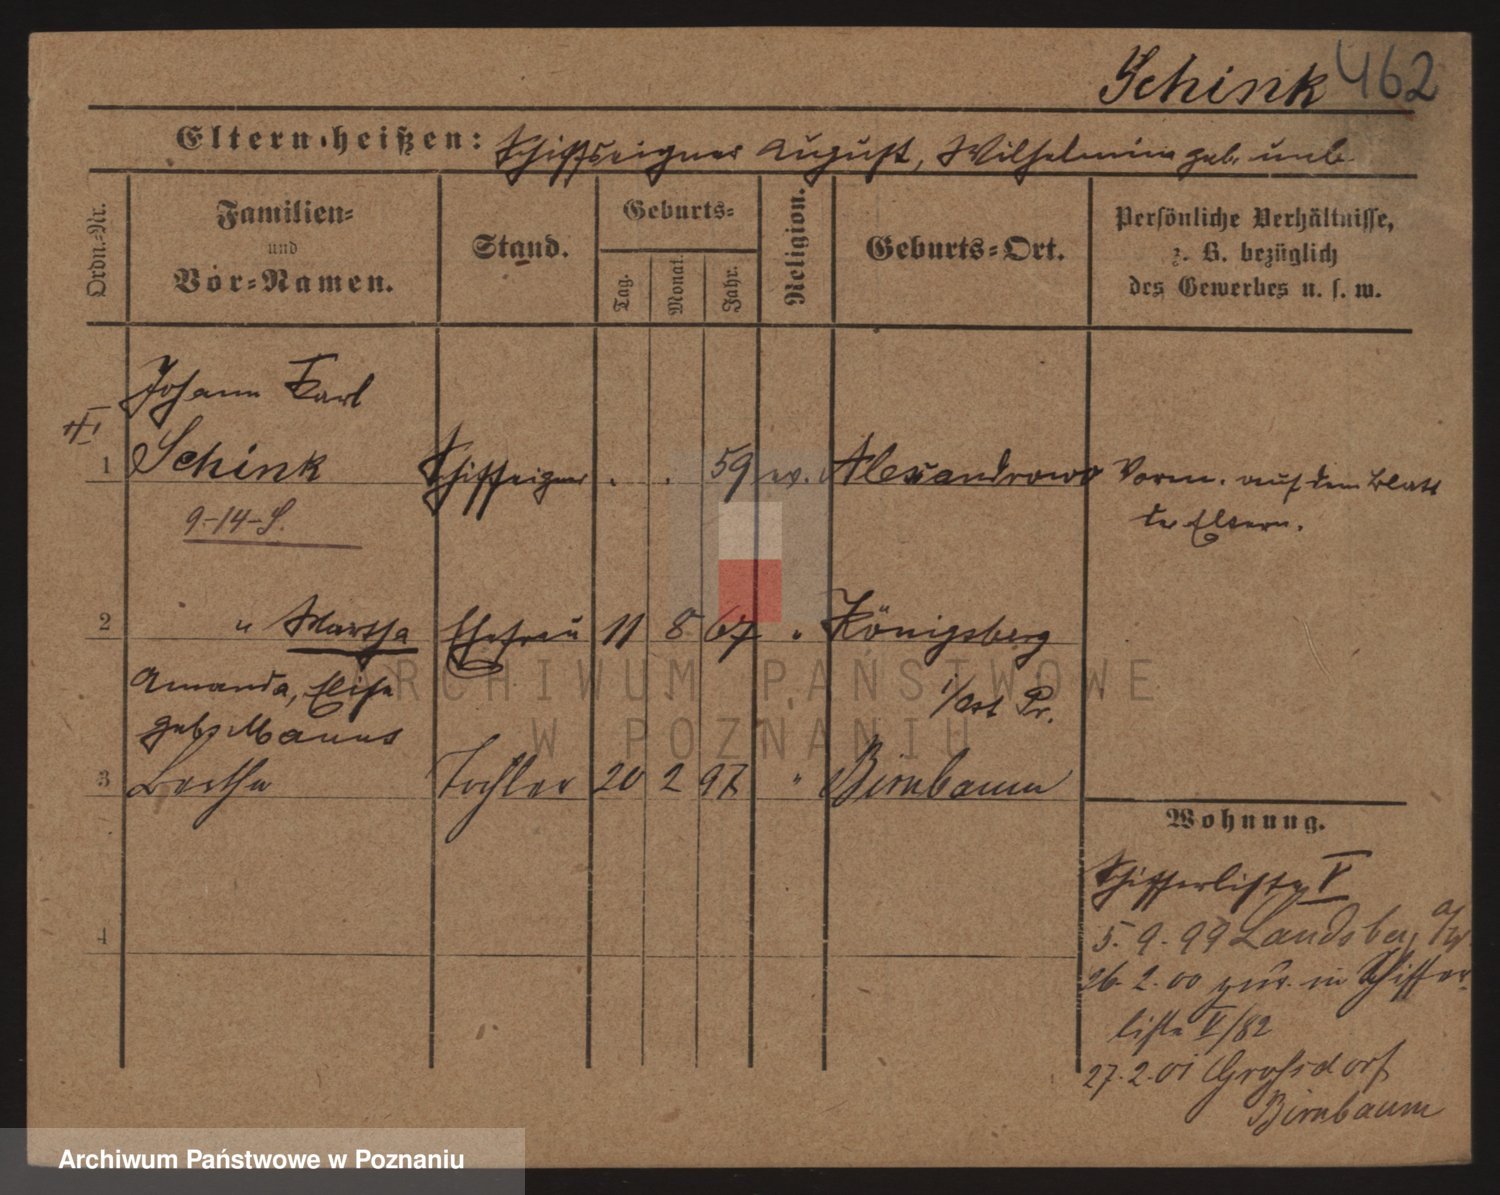 Schink 462
Eltern heißen: Schiffseigner August, Wilhelmine geb. unb.
Ordn.-Nr.
Familien=
und
Vor=Namen.
Stand.
Geburts=
Tag.
Monat.
Jahr.
Religion.
Geburts=Ort.
Persönliche Verhältnisse,
z. B. bezüglich
des Gewerbes u. s. w.
Johann Karl
1 Schink Schiffseigner . . 59 ev. Alexandrowo Vorm. auf dem Blatt
der Eltern.
9-14-S.
2 " Martha Ehefrau 11 8 67 " Königsberg
Amanda, Elise i/Ost Pr.
geb. Manns
3 Bertha Tochter 20 2 97 " Birnbaum
4
Wohnung.
Schifferliste V
5. 9. 99 Landsberg a/W
26. 2. 00 zur. in Schiffer-
liste V/82
27. 2. 01 Grossdorf
Birnbaum
ARCHIWUM PAŃSTWOWE
W POZNANIU
Archiwum Państwowe w Poznaniu